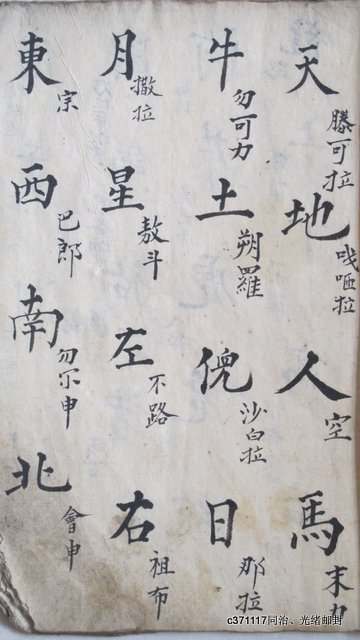 天 滕可拉
地 哦咂拉
人 空
馬 末力
牛 勿可力
土 朔羅
倪 沙白拉
日 那拉
月 撒拉
星 敖斗
左 不路
右 祖布
東 宗
西 巴郎
南 勿尕申
北 會申
c371117同治、光绪邮封